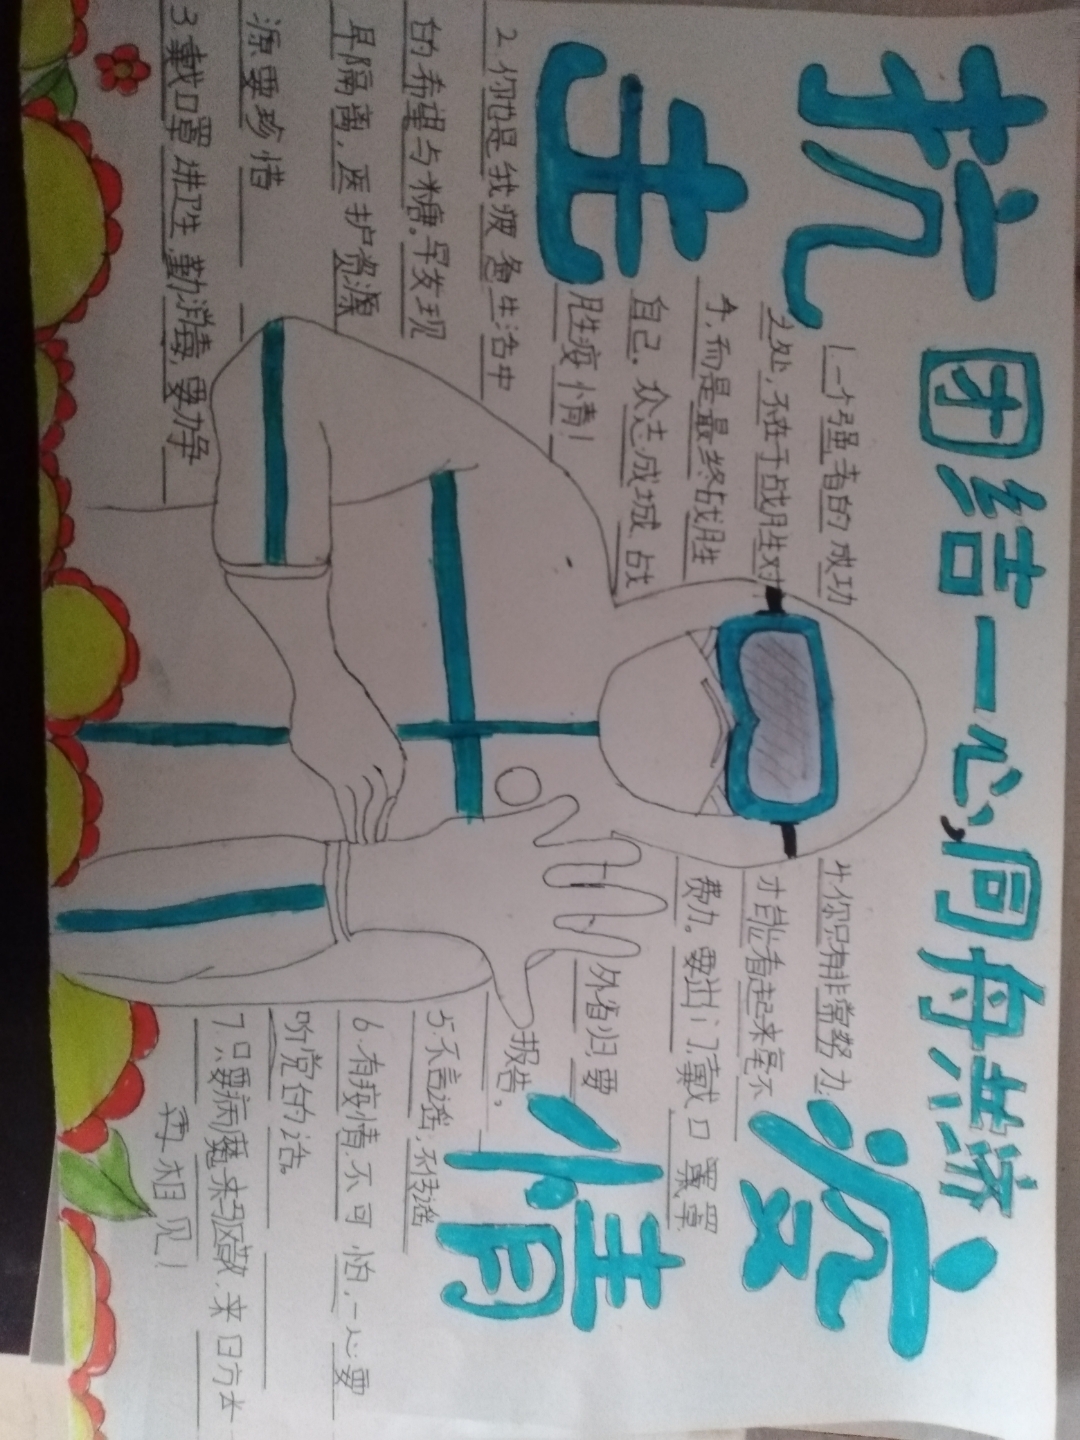 团结一心,同舟共济
抗击
疫情
1.一个强者的成功
之处,不在于战胜对
手,而是最终战胜
自己。众志成城 战
胜疫情!
2.你也是我疲惫生活中
的希望与糖。早发现
早隔离,医护资源
源要珍惜
3戴口罩讲卫生,勤消毒,要力争
4你只有非常努力
才能看起来毫不
费力。要出门,戴口罩
外省归,要
报告。
5.不信谣,不传谣
6.有疫情,不可怕,一心要
听党在的话。
7.只要病魔未驱散,来日方长
再相见!